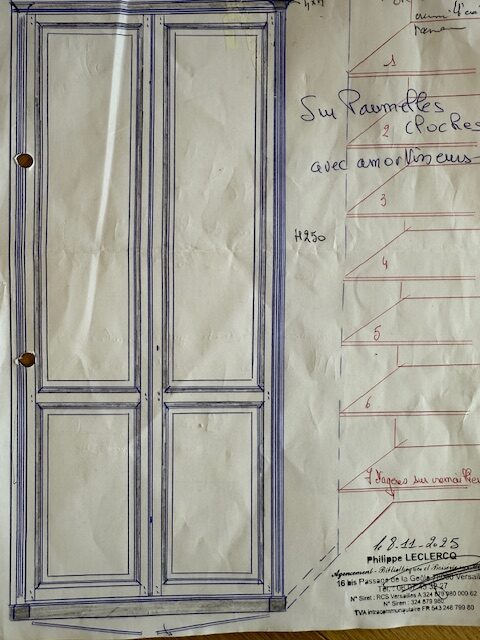 1
Sur Paumelles
2
Cloches
avec amortisseurs
3
H250
4
5
6
7 Etagères sur cremaillères
le 8-11-2025
Philippe LECLERCQ
Agencement - Bibliothèques et
16 bis Passage de la Geôle 78000 Versai
Tél. :
N° Siret : RCS Versailles A 324 879 980 000 62
N° Siren : 324 879 980
TVA intracommunautaire FR 543 248 799 80